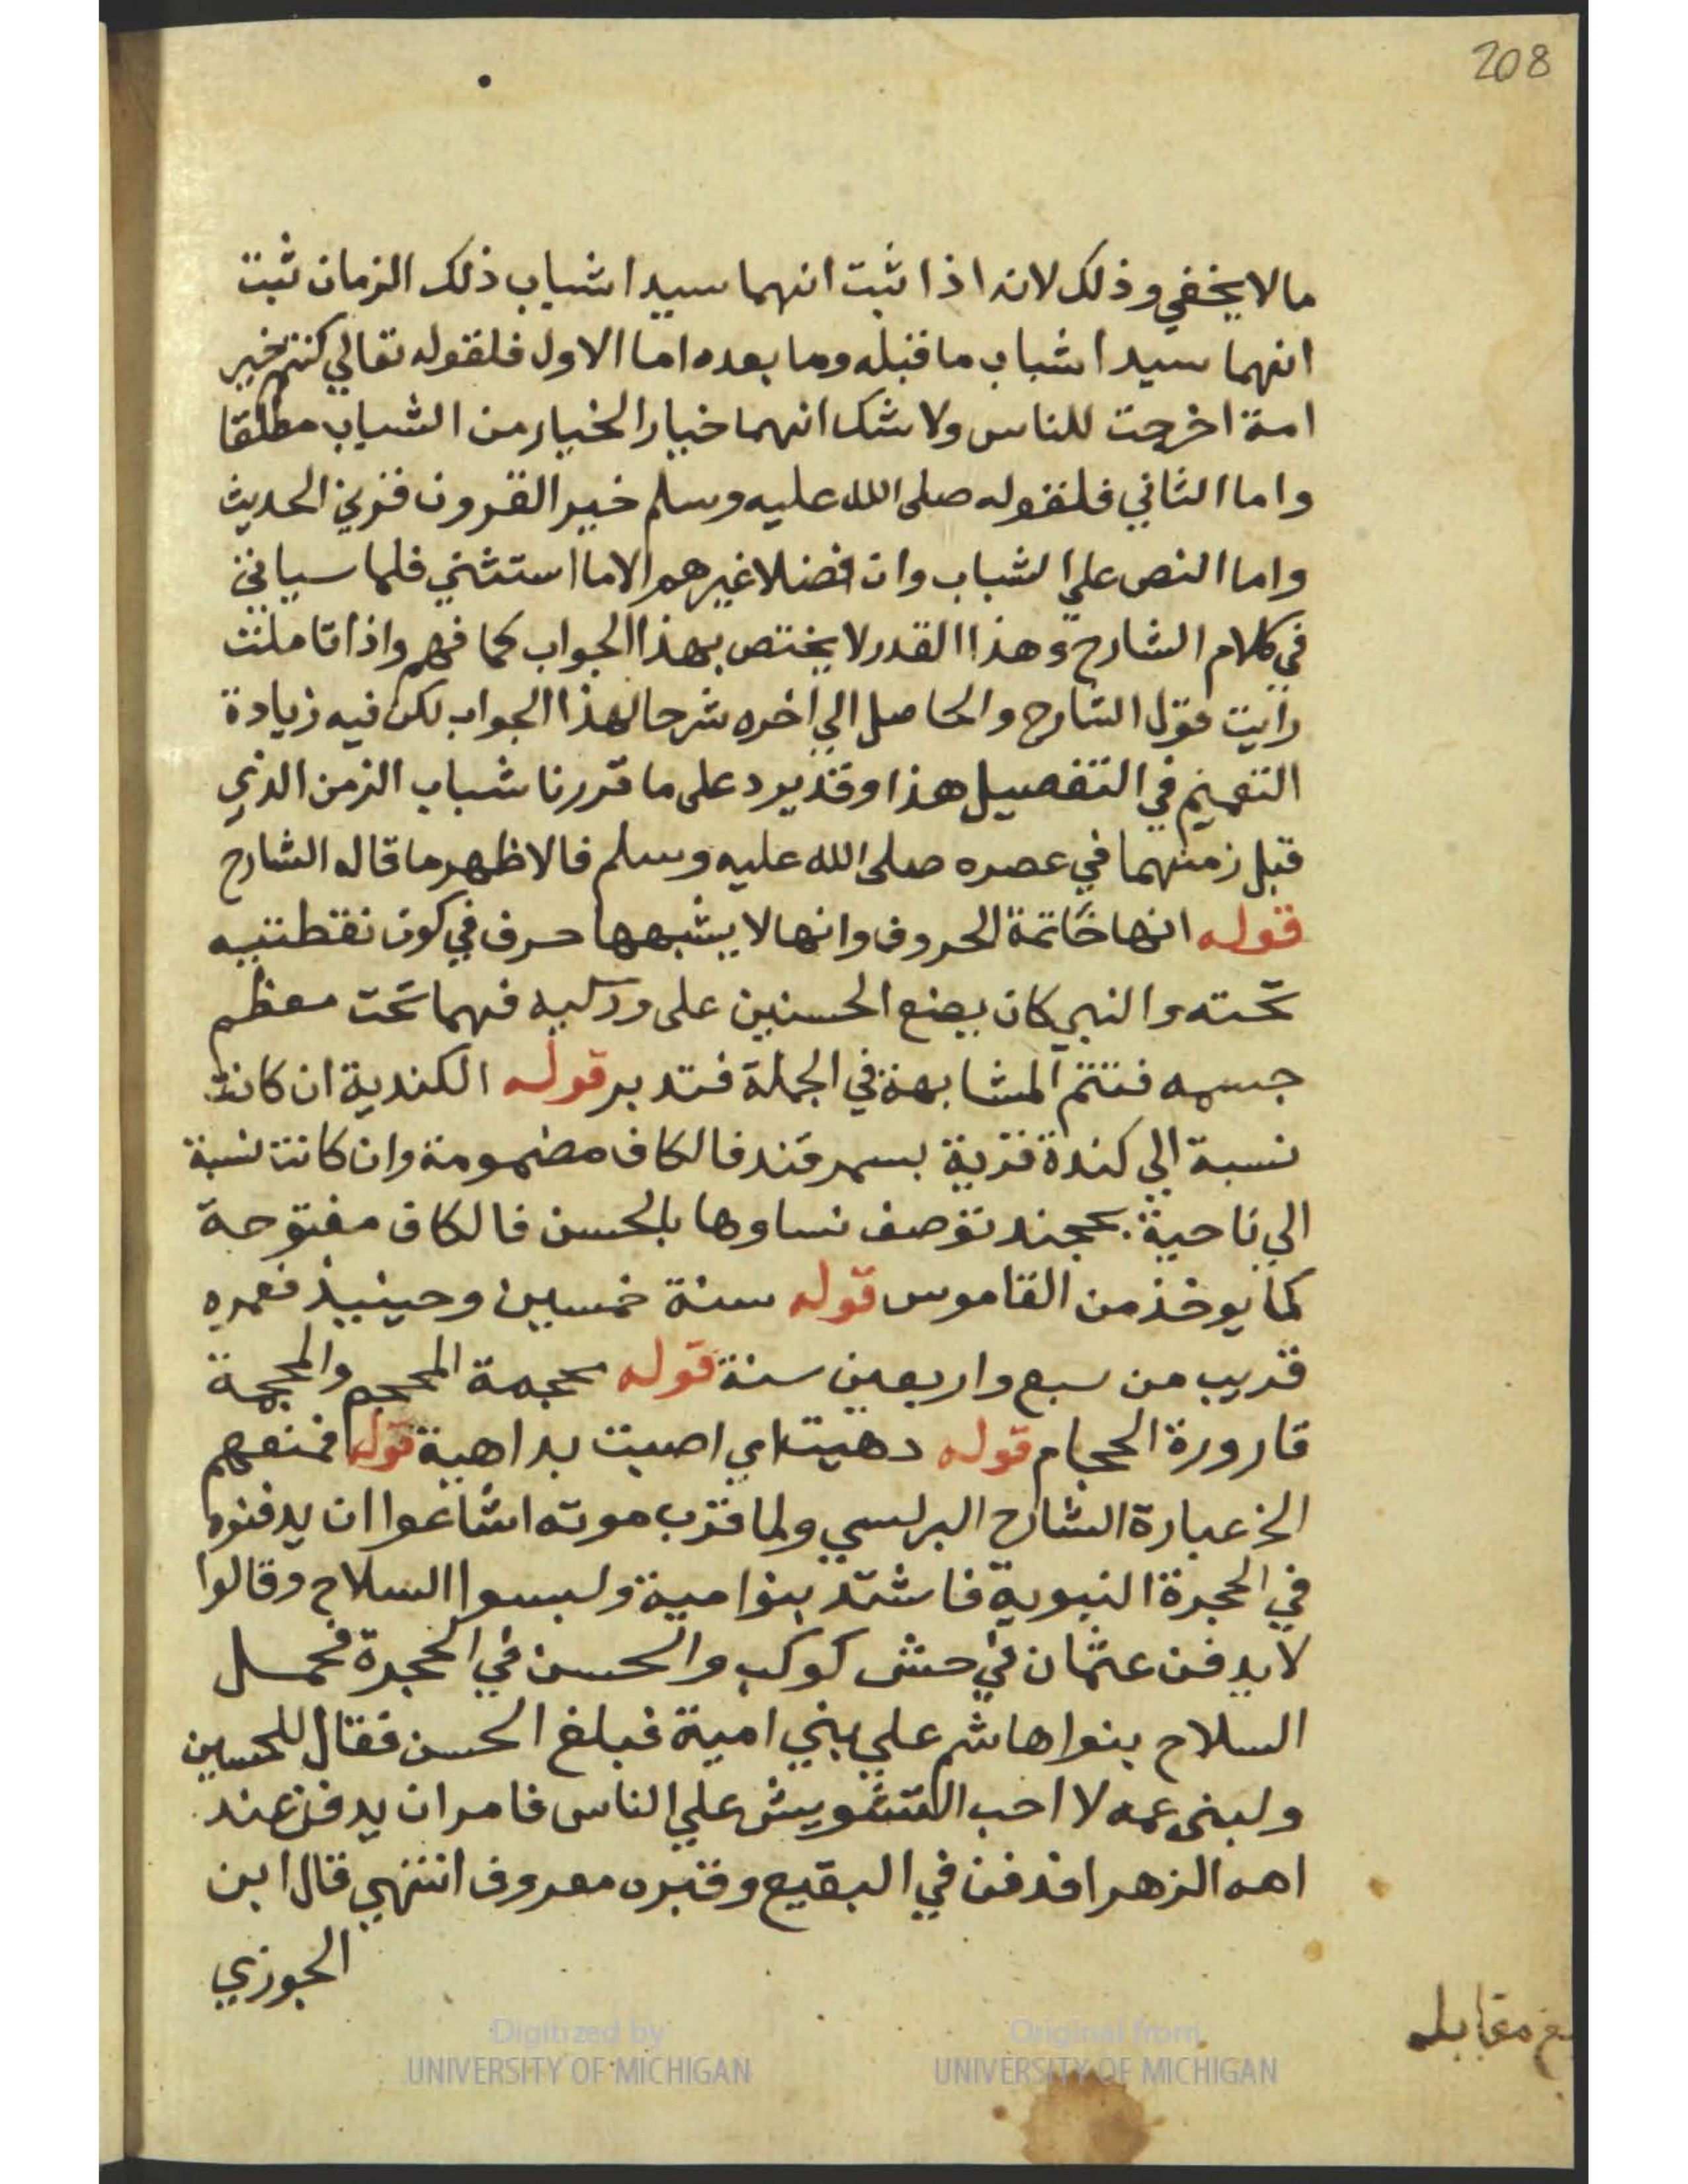 208
ما لا يخفي وذلك لانه اذا ثبت انهما سيدا شباب ذلك الزمان ثبت
انهما سيدا شباب ما قبله وما بعده اما الاول فلقوله تعالي كنتم خير
امة اخرجت للناس ولا شك انهما خيار الخيار من الشباب مطلقا
واما الثاني فلقوله صلى الله عليه وسلم خير القرون قرني الحديث
واما النص علي الشباب وان فضلا غيرهم الا ما استثني فلما سياتي
في كلام الشارح وهذا القدر لا يختص بهذا الجواب كما فهم واذا تاملت
رايت قول الشارح والحاصل الي اخره شرحا لهذا الجواب لكن فيه زيادة
التعميم في التفصيل هذا وقد يرد على ما قررنا شباب الزمن الذي
قبل زمنهما في عصره صلى الله عليه وسلم فالاظهر ما قاله الشارح
قوله انها خاتمة الحروف وانها لا يشبهها حرف في كون نقطتيه
تحته والنبي كان يضع الحسنين على وركيه فهما تحت معظم
جسمه فتتم المشابهة في الجملة فتدبر قوله الكندية ان كانت
نسبة الي كندة قرية بسمرقند فالكاف مضمومة وان كانت نسبة
الي ناحية بخجند توصف نساوها بالحسن فالكاف مفتوحة
كما يوخذ من القاموس قوله سنة خمسين وحينيذ فعمره
قريب من سبع واربعين سنة قوله محجمة المحجم والمحجمة
قارورة الحجام قوله دهيت اي اصبت بداهية قوله فمنعهم
الخ عبارة الشارح البرلسي ولما قرب موته اشاعوا ان يدفنوه
في الحجرة النبوية فاشتد بنوا مية ولبسوا السلاح وقالوا
لا يدفن عثمان في حش كوكب والحسن في الحجرة فحمل
السلاح بنوا هاشم علي بني امية فبلغ الحسن فقال للحسين
ولبنى عمه لا احب التشويش علي الناس فامر ان يدفن عند
امه الزهرا فدفن في البقيع وقبره معروف انتهي قال ابن
الجوزي
مقابله
Digitized by
UNIVERSITY OF MICHIGAN
Original from
UNIVERSITY OF MICHIGAN